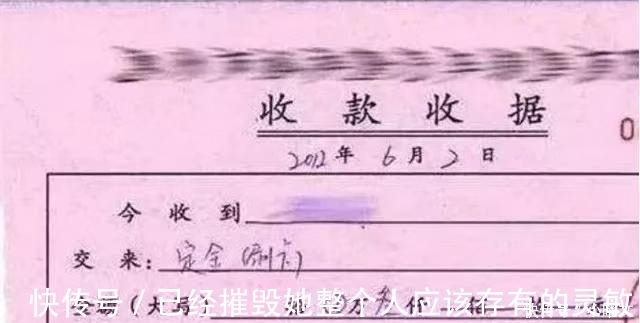 收款收据
0
2012年6月2日
今收到
交来：定金（刷卡）
快传号／已经摧毁她整个人应该存有的灵敏